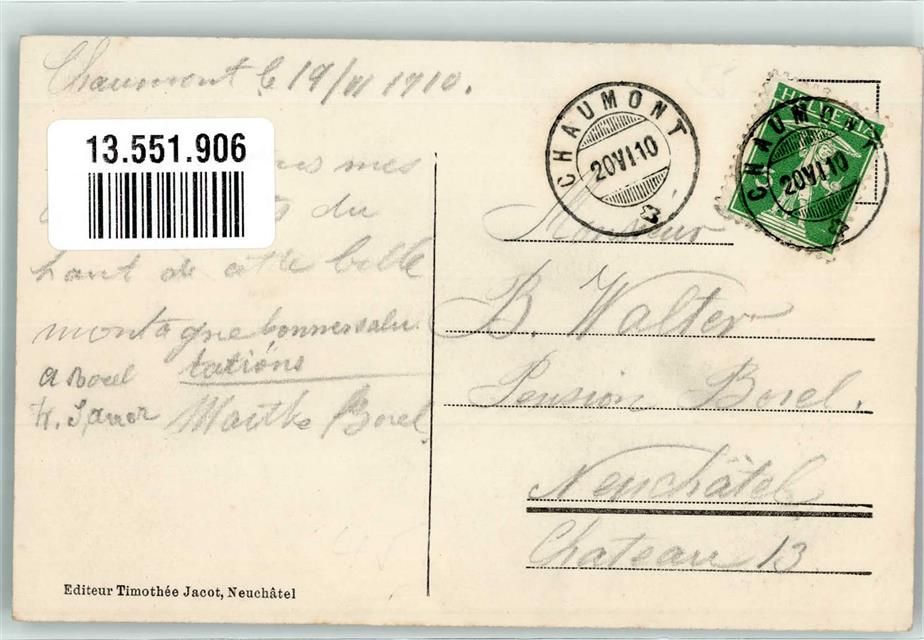 Chaumont le 19/VI 1910.
13.551.906
mes
du
haut de cette belle
montagne bonnes salu
tations
A Borel
Marthe Borel
CHAUMONT
20 VI 10
HELVETIA
CHAUMONT
20 VI 10
Monsieur
B. Walter
Pension Borel.
Neuchâtel
Chateau 13
Editeur Timothée Jacot, Neuchâtel